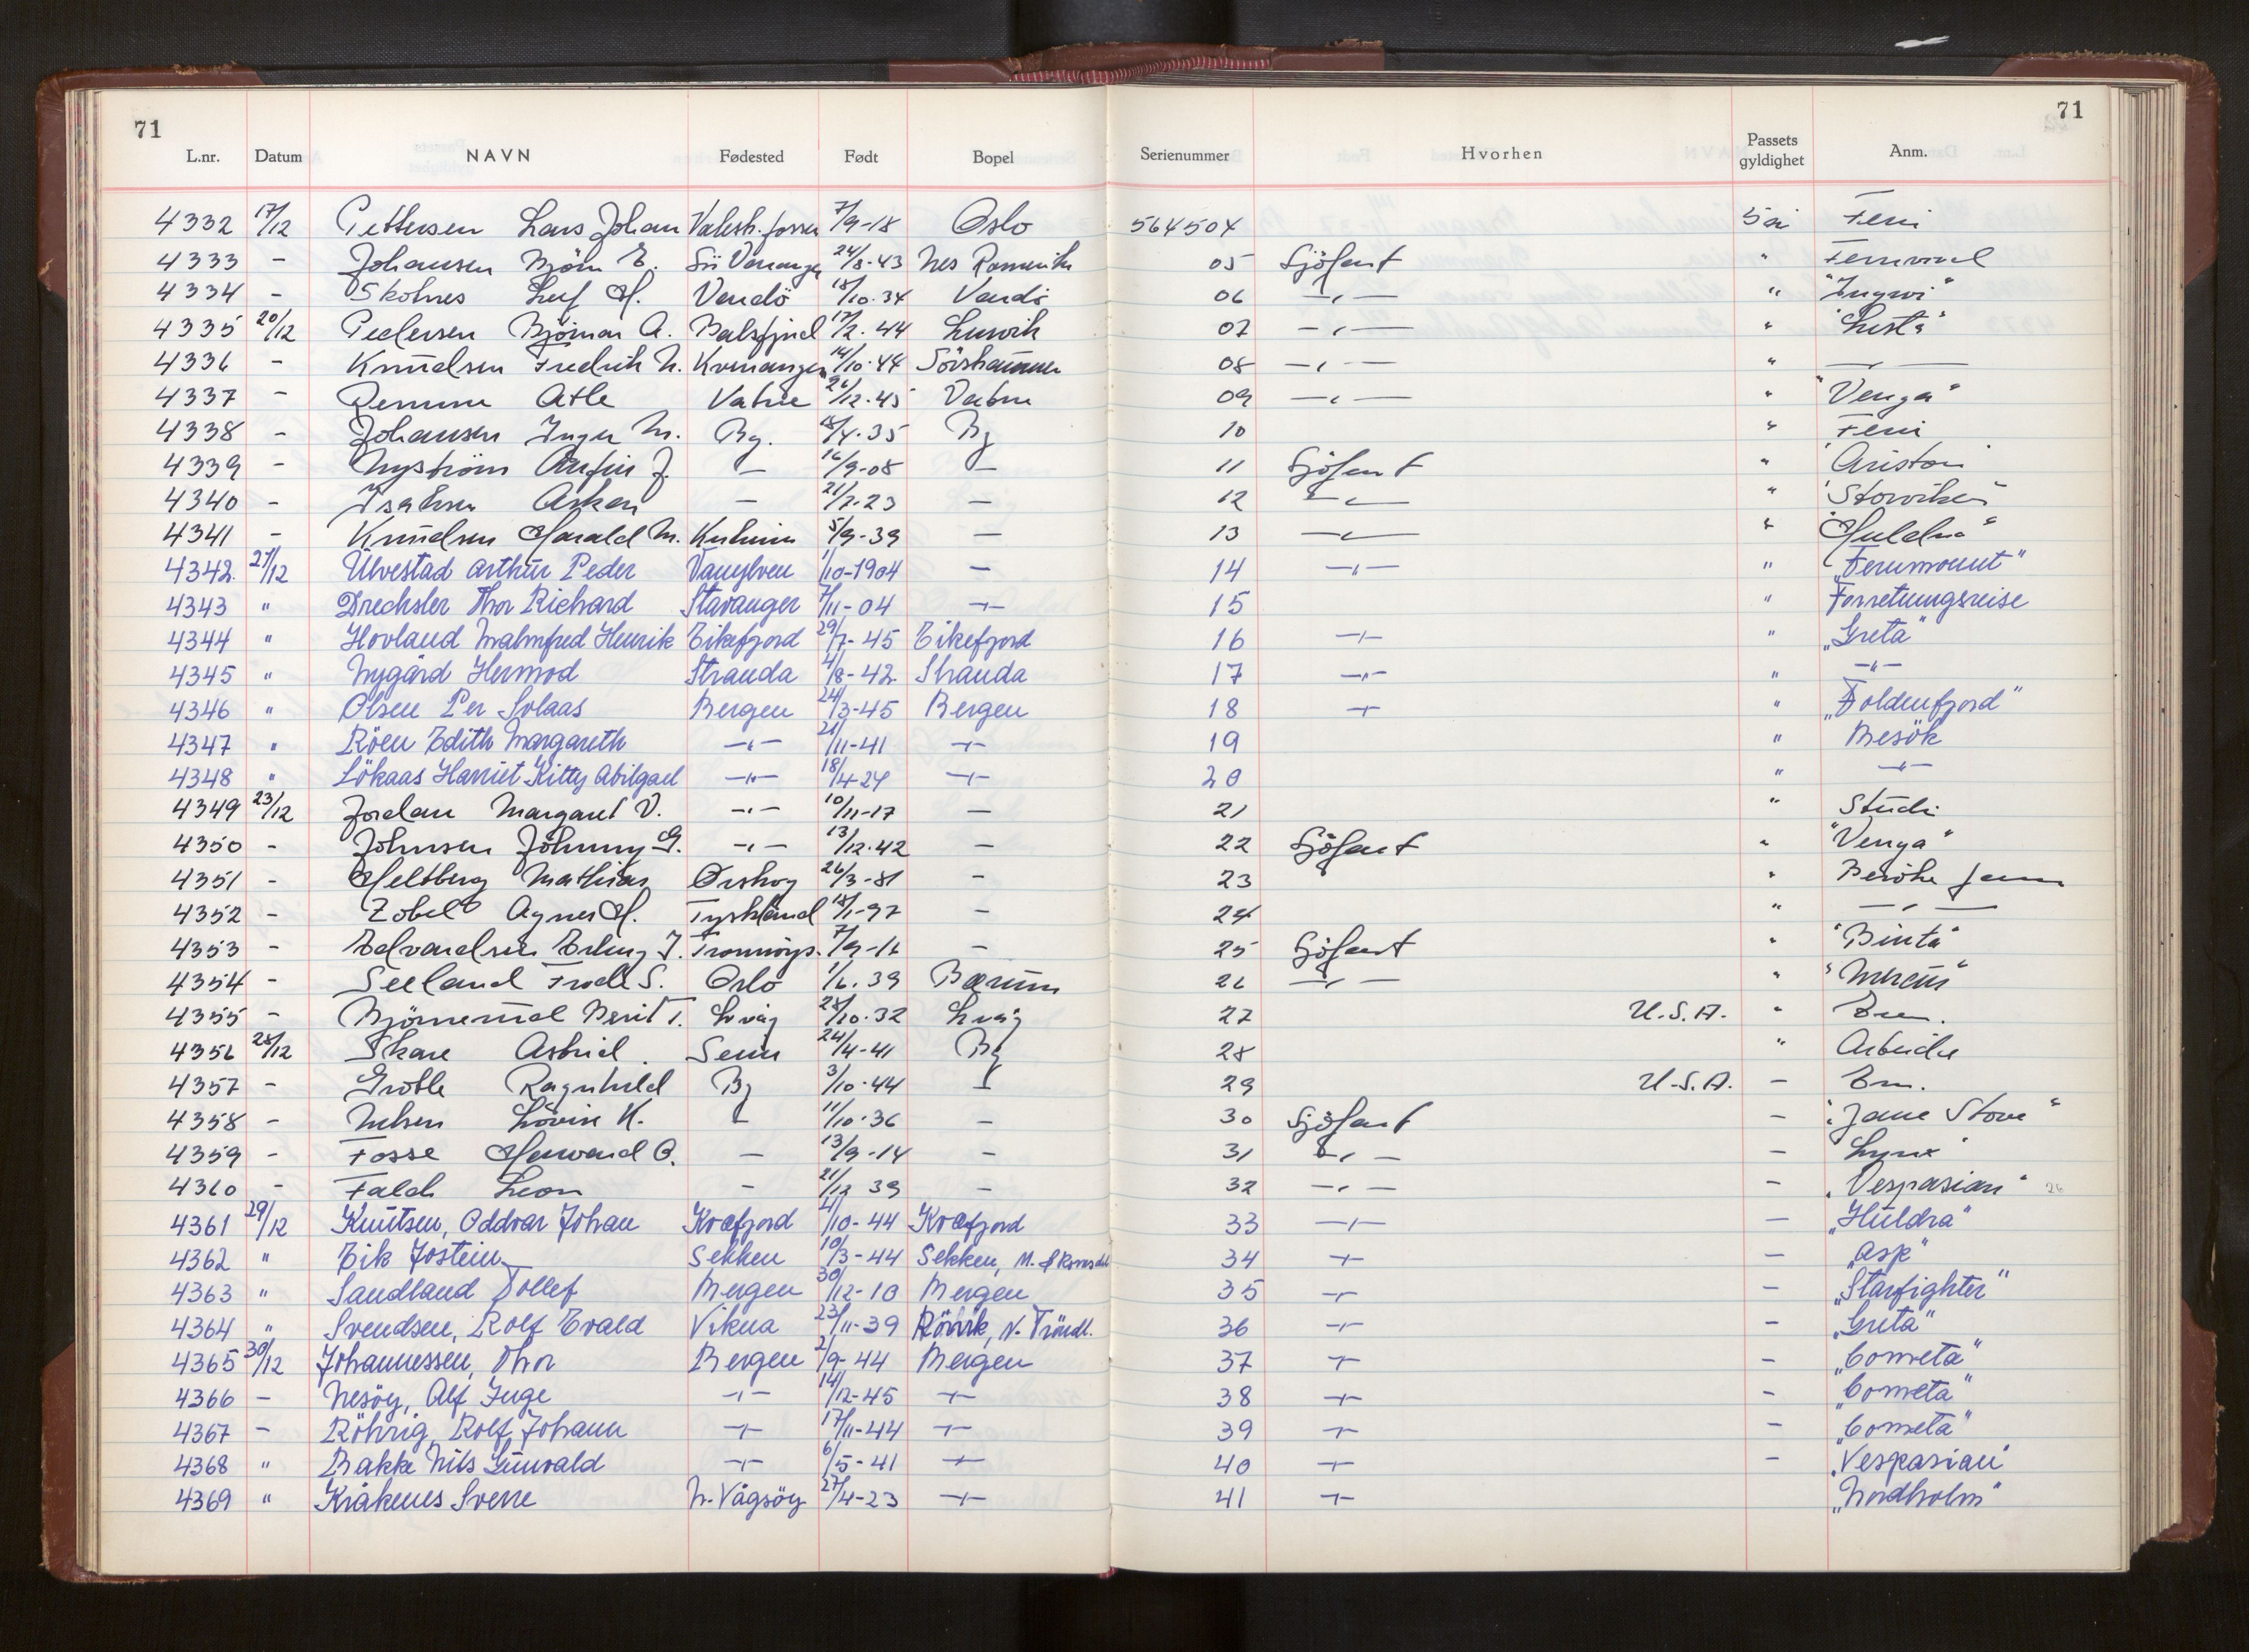 71 71
L.nr. Datum NAVN Fødested Født Bopel Serienummer Hvorhen Passets gyldighet Anm.
4332 17/12 Pettersen Lars Johan 7/9-18 Oslo 564504 5 år Feri
4333 - Johansen Bjørn E. 24/8-43 Nes Romerike 05 Sjöfart " Fernvind
4334 - Skolnes Leif H. Vardö 18/10.34 Vardö 06 -"- " "Ingwi"
4335 20/12 Pedersen Bjørnar A. Balsfjord 17/2.44 Lenvik 07 -"- " "Lista"
4336 - Knudsen Fredrik N. Kvenangen 14/10.44 08 -"- " -"-
4337 - Remme Atle Vatne 26/12.45 Vatne 09 -"- " "Venga"
4338 - Johansen Inger M. Bg. 18/4.35 Bg 10 " Feri
4339 - Nyström Arfin J. - 16/9-08 - 11 Sjöfart " "Ariston"
4340 - Isaksen Asken - 21/7.23 - 12 -"- " "Storviken"
4341 - Knudsen Harald M. 5/9-39 - 13 -"- " "Huldra"
4342. 27/12 Ulvestad Arthur Peder Vanylven 1/10-1904 - 14 -"- " "Fernmount"
4343 " Drechsler Thor Richard Stavanger 7/11-04 -"- 15 " Forretningsreise
4344 " Hovland Malmfred Henrik Eikefjord 29/7-45 Eikefjord 16 -"- " "Greta"
4345 " Nygård Hermod Stranda 4/8-42. Stranda 17 -"- " -"-
4346 " Olsen Per Solaas Bergen 24/3-45 Bergen 18 -"- " "Foldenfjord"
4347 " Röen Edith Margareth -"- 21/11-41 -"- 19 " Besök
4348 " Lökaas Harriet Kitty Abilgael -"- 18/4-24 -"- 20 " -"-
4349 23/12 Jordan Margaret V. -"- 10/11-17 - 21 " Studi
4350 - Johnsen Johnny G. -"- 13/12.42 - 22 Sjöfart " "Venga"
4351 - Heltberg Mathias Ørskog 26/3-81 - 23 " Besöke
4352 - Zobel Agnes H. Tyskland 18/1-97 - 24 " -"-
4353 - Edvardsen Erling J. 7/9-16 - 25 Sjöfart " "Binta"
4354 - Seeland Frode S. Oslo 1/6.39 Bærum 26 -"- "
4355 - Berit T. 28/10.32 27 U.S.A. " Em.
4356 28/12 Skare Astrid. 24/4-41 Bg 28 " Arbeide
4357 - Grotle Ragnhild Bg 3/10.44 -"- 29 U.S.A. - Em.
4358 - Nelsen K. -"- 11/10.36 - 30 Sjöfart - "Jane Stove"
4359 - Fosse O. - 13/9-14 - 31 -"- - "Lynx"
4360 - Falch Leon - 21/12 39 - 32 -"- - "Vespasian" 26
4361 29/12 Knutsen, Oddvar Johan Kvæfjord 4/10-44 Kvæfjord 33 -"- - "Huldra"
4362 " Eik Jostein Sekken 10/3-44 Sekken, M. & Romsdal 34 -"- - "Asp"
4363 " Sandland Tollef Bergen 30/12-10 Bergen 35 -"- - "Starfighter"
4364 " Svendsen, Rolf Evald Vikna 23/11-39 Rörvik, N. Tröndl. 36 -"- - "Greta"
4365 30/12 Johannessen, Thor Bergen 2/9-44 Bergen 37 -"- - "Cometa"
4366 - Nesöy, Alf Inge -"- 14/12-45 -"- 38 -"- - "Cometa"
4367 - Röhrig, Rolf Johann -"- 17/11-44 -"- 39 -"- - "Cometa"
4368 " Bakke Nils Gunvald -"- 6/5-41 -"- 40 -"- - "Vespasian"
4369 " Kråkenes Sverre N. Vågsöy 27/4-23 -"- 41 -"- "Nordholm"